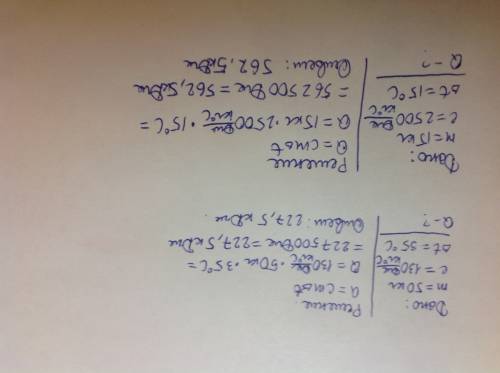 Дано:
m = 50 кг
c = 130 Дж/кг°C
Δt = 35 °C
Q - ?
Решение
Q = cmΔt
Q = 130 Дж/кг°C · 50 кг · 35 °C =
= 227500 Дж = 227,5 кДж
Ответ: 227,5 кДж.
Дано:
m = 15 кг
c = 2500 Дж/кг°C
Δt = 15 °C
Q - ?
Решение
Q = cmΔt
Q = 15 кг · 2500 Дж/кг°C · 15 °C =
= 562500 Дж = 562,5 кДж
Ответ: 562,5 кДж